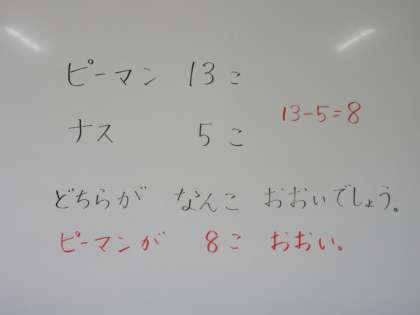 ピーマン 13こ
ナス 5こ
13-5=8
どちらが なんこ おおいでしょう。
ピーマンが 8こ おおい。